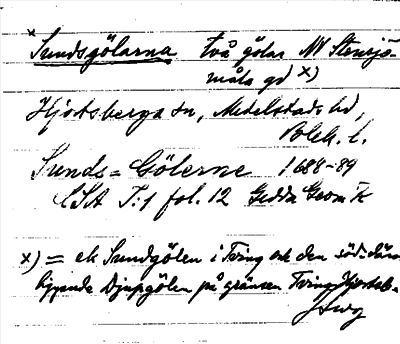 x Sundsgölarna två gölar NV Stensjö-
måla gd x)
Hjortsberga sn, Medelstads hd,
Blek. l.
Sunds=Gölerne 1688-89
LSA T:1 fol. 12 Gedda Geom K
x) = ek Sundgölen i Tving och den söd. där
liggande Djupgölen på gränsen Tving Hjortsb.